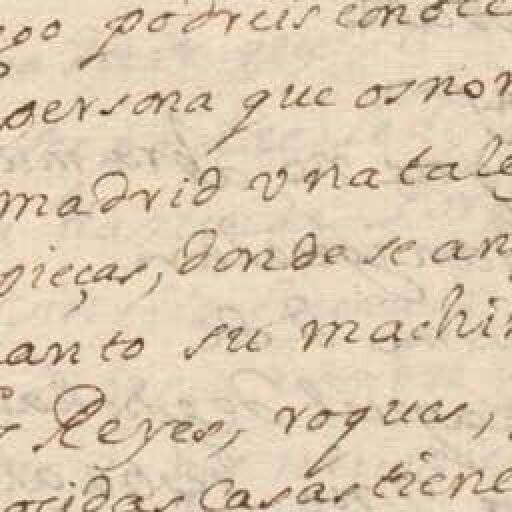 ego podreis conoce
persona que os non
madrid vna tale
pieças, donde se an
anto su machin
s Reyes, roques,
ocidas casas tiene